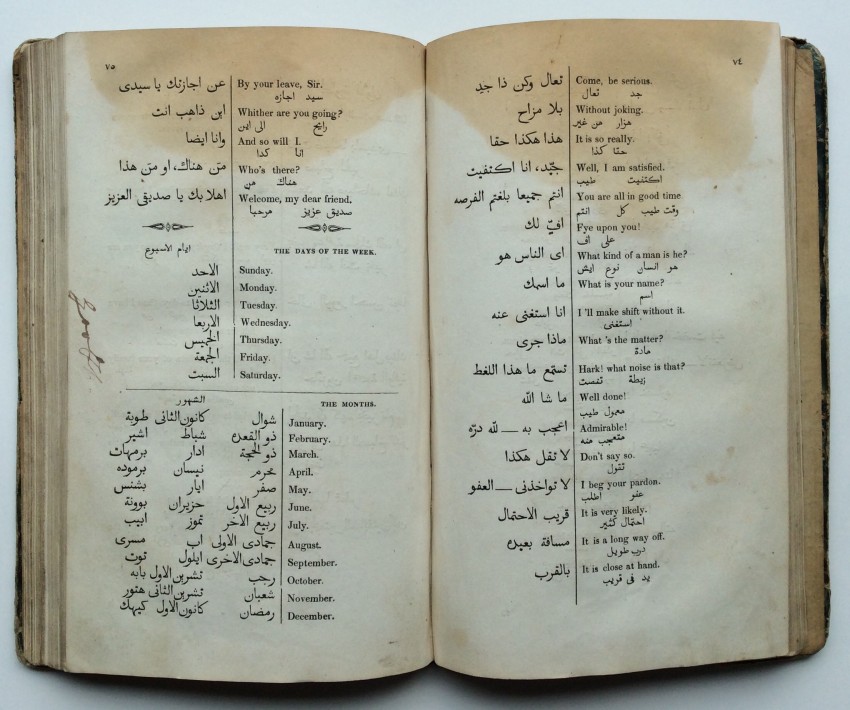 ٧٤
تعال وكن ذا جد Come, be serious.
جد تعال
بلا مزاح Without joking.
هزار من غير
هذا هكذا حقا It is so really.
حقا كذا
جيّد، انا اكتفيت Well, I am satisfied.
اكتفيت طيب
انتم جميعا بلغتم الفرصه You are all in good time
وقت طيب كل انتم
افّ لك Fye upon you!
على اف
اى الناس هو What kind of a man is he?
هو انسان نوع ايش
ما اسمك What is your name?
اسم
انا استغنى عنه I'll make shift without it.
استغنى
ماذا جرى What's the matter?
مادة
تستمع ما هذا اللغط Hark! what noise is that?
زيطة
ما شا الله Well done!
معمول طيب
اعجب به — لله درّه Admirable!
متعجب منه
لا تقل هكذا Don't say so.
تقول
لا تواخذنى — العفو I beg your pardon.
عفو اطلب
قريب الاحتمال It is very likely.
احتمال كثير
مسافة بعيده It is a long way off.
درب طويل
بالقرب It is close at hand.
يد فى قريب
٧٥
عن اجازتك يا سيدى By your leave, Sir.
سيد اجازه
اين ذاهب انت Whither are you going?
رايح الى اين
وانا ايضا And so will I.
انا كدا
من هناك، او من هذا Who's there?
هناك من
اهلا بك يا صديقى العزيز Welcome, my dear friend.
صديق عزيز مرحبا
ايام الاسبوع THE DAYS OF THE WEEK.
الاحد Sunday.
الاثنين Monday.
الثلاثا Tuesday.
الاربعا Wednesday.
الخميس Thursday.
الجمعة Friday.
السبت Saturday.
الشهور THE MONTHS.
شوال كانون الثانى طوبة January.
ذو القعده شباط امشير February.
ذو الحجة ادار برمهات March.
محرم نيسان برموده April.
صفر ايار بشنس May.
ربيع الاول حزيران بوونة June.
ربيع الاخر تموز ابيب July.
جمادى الاولى اب مسرى August.
جمادى الاخرى ايلول توت September.
رجب تشرين الاول بابه October.
شعبان تشرين الثانى هتور November.
رمضان كانون الاول كيهك December.